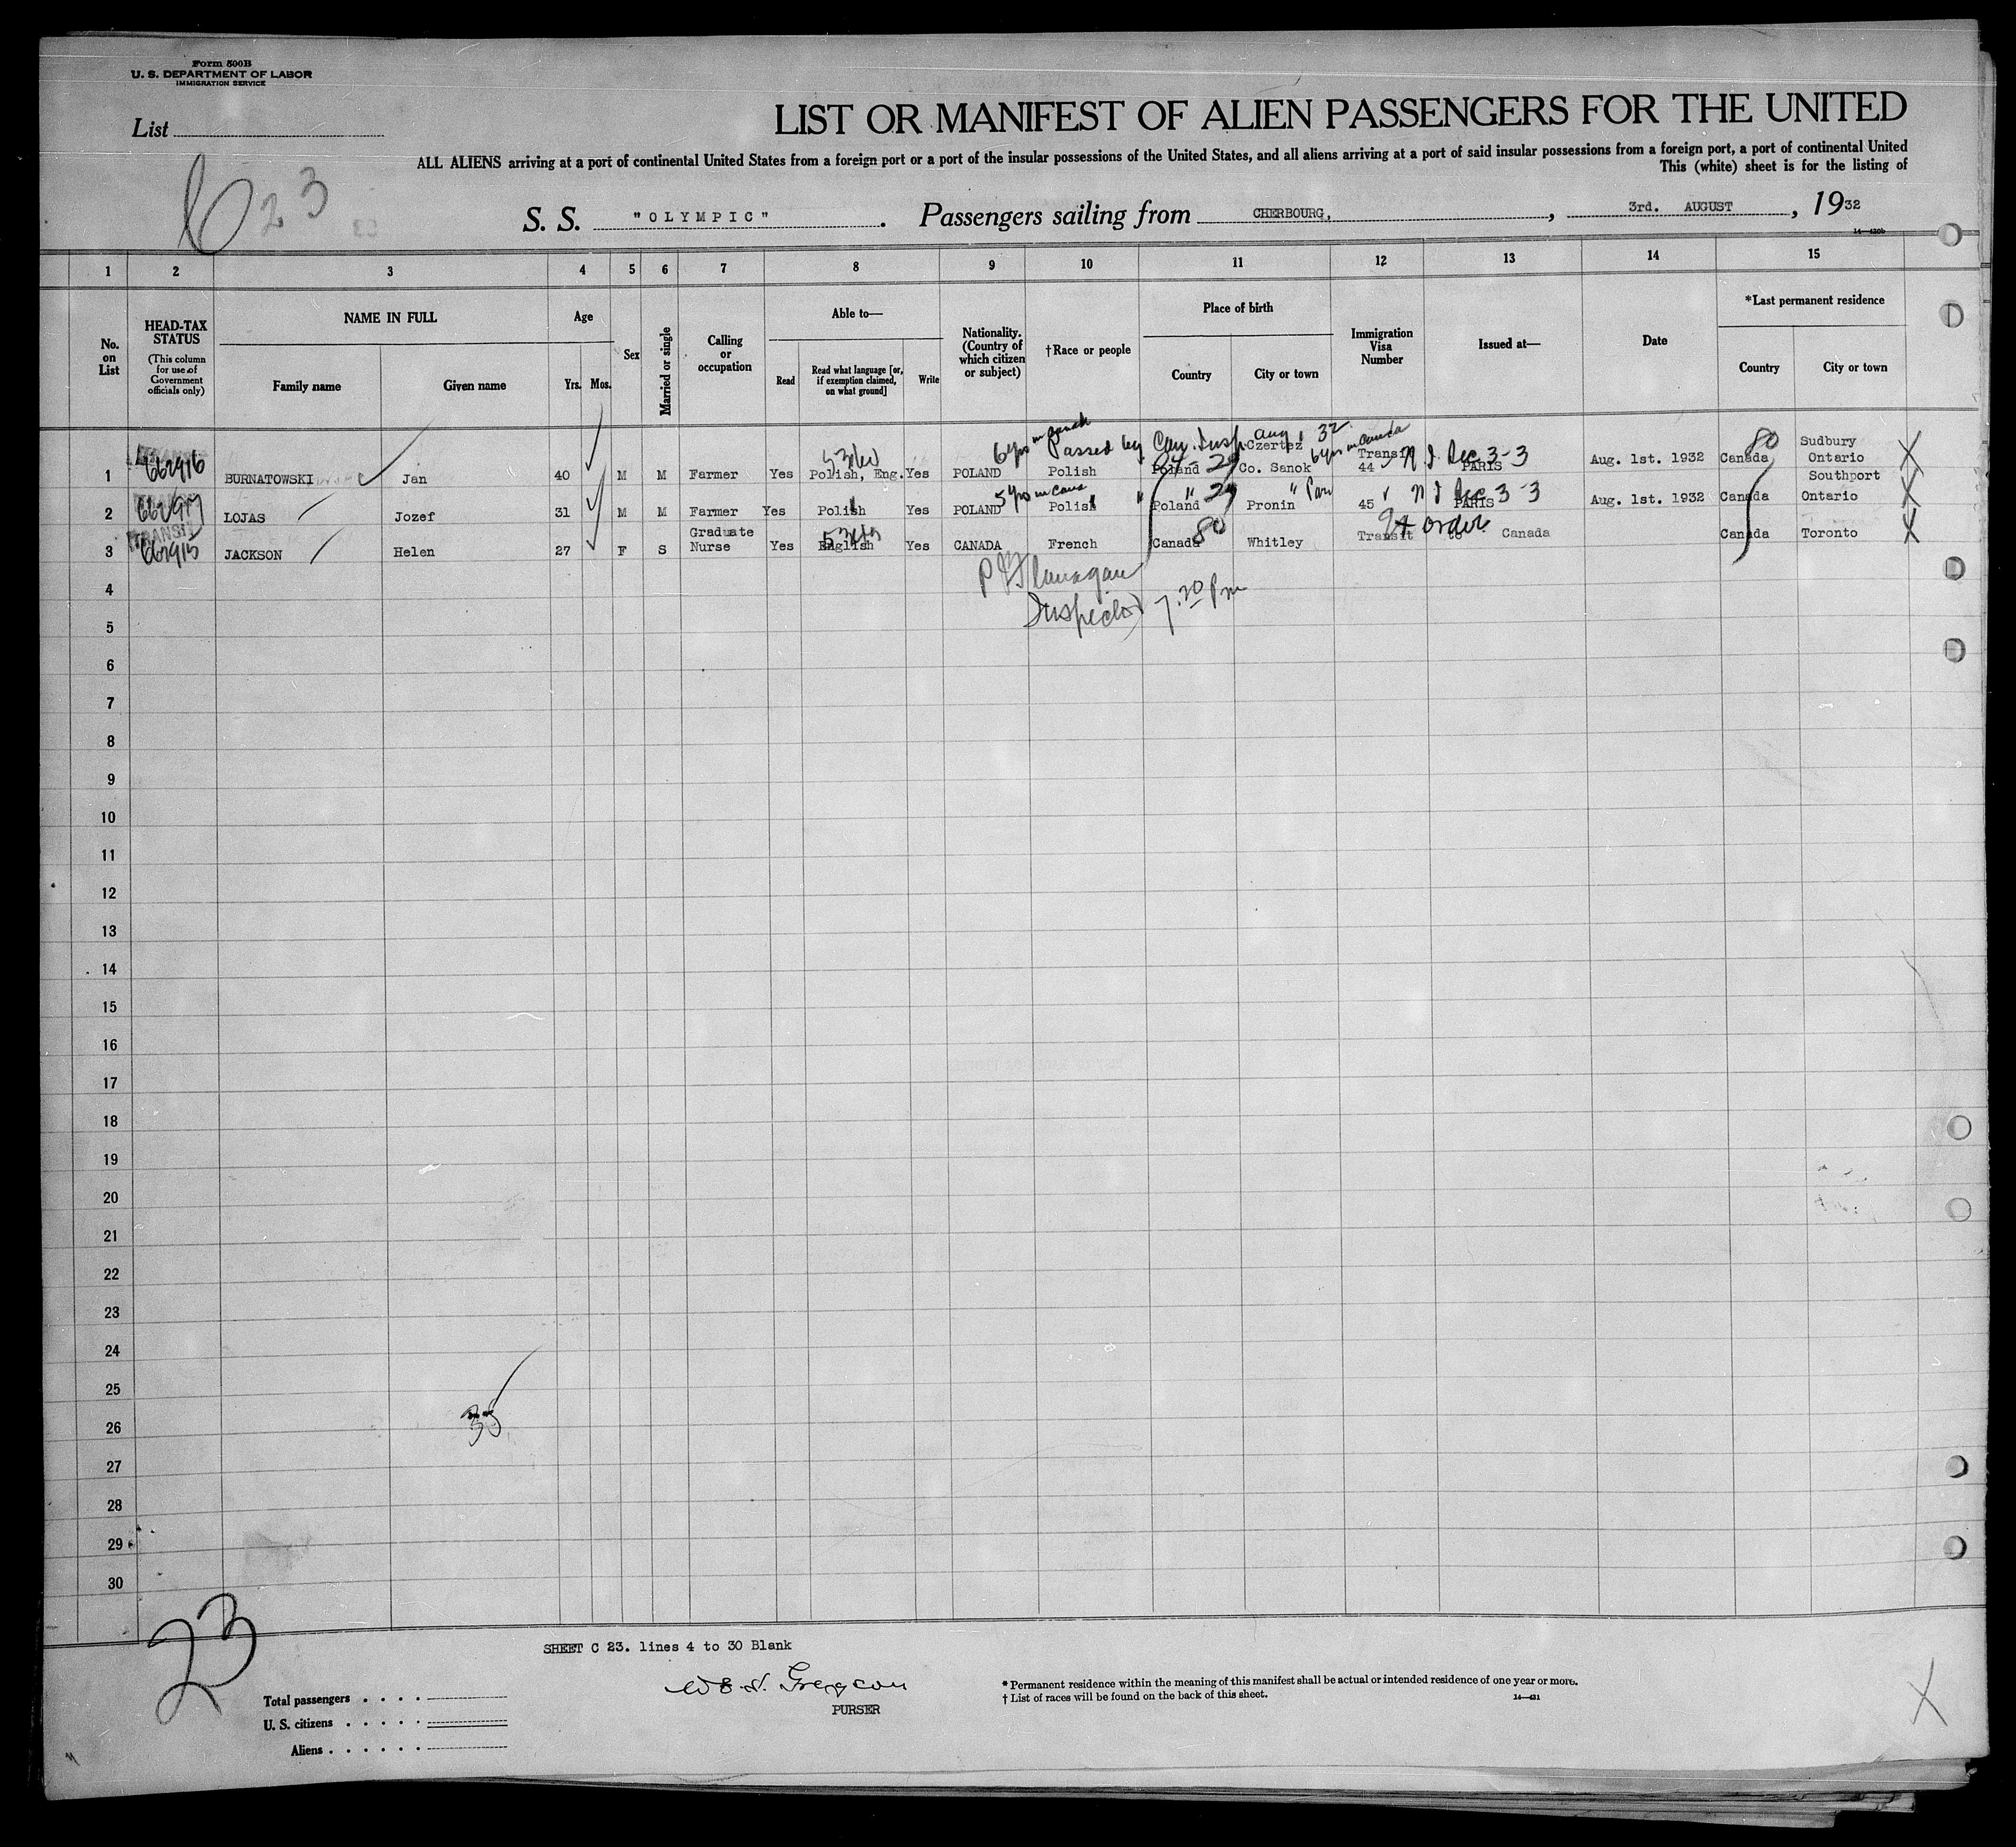 Form 500B
U. S. DEPARTMENT OF LABOR
IMMIGRATION SERVICE
List
LIST OR MANIFEST OF ALIEN PASSENGERS FOR THE UNITED
ALL ALIENS arriving at a port of continental United States from a foreign port or a port of the insular possessions of the United States, and all aliens arriving at a port of said insular possessions from a foreign port, a port of continental United
This (white) sheet is for the listing of
23
S. S. "OLYMPIC". Passengers sailing from CHERBOURG, , 3rd. AUGUST , 1932
14—430b
1 2 3 4 5 6 7 8 9 10 11 12 13 14 15
No. on List
HEAD-TAX STATUS (This column for use of Government officials only)
NAME IN FULL Family name Given name
Age Yrs. Mos.
Sex
Married or single
Calling or occupation
Able to— Read Read what language [or, if exemption claimed, on what ground] Write
Nationality. (Country of which citizen or subject)
†Race or people
Place of birth Country City or town
Immigration Visa Number
Issued at—
Date
*Last permanent residence Country City or town
6 yrs in Canada Passed by Can. Insp. Aug, 32
1 662916 BURNATOWSKI Jan 40 M M Farmer Yes Polish, Eng. Yes POLAND Polish Poland Czertez Co. Sanok 6 yrs in Canada Transit 44 PARIS Aug. 1st. 1932 Canada 80 Sudbury Ontario X
5 yrs in Cana
2 662917 LOJAS Jozef 31 M M Farmer Yes Polish Yes POLAND Polish Poland Pronin 45 PARIS Aug. 1st. 1932 Canada Southport Ontario X
3 TRANSIT 662915 JACKSON Helen 27 F S Graduate Nurse Yes English Yes CANADA French Canada 80 Whitley Transit to Canada Canada Toronto X
P J Flanagan
Inspector 7.20 Pm
4
5
6
7
8
9
10
11
12
13
14
15
16
17
18
19
20
21
22
23
24
25
26
27
28
29
30
23
SHEET C 23. lines 4 to 30 Blank
PURSER
Total passengers . . . .
U. S. citizens . . . . .
Aliens . . . . . .
* Permanent residence within the meaning of this manifest shall be actual or intended residence of one year or more.
† List of races will be found on the back of this sheet.
14—431
X